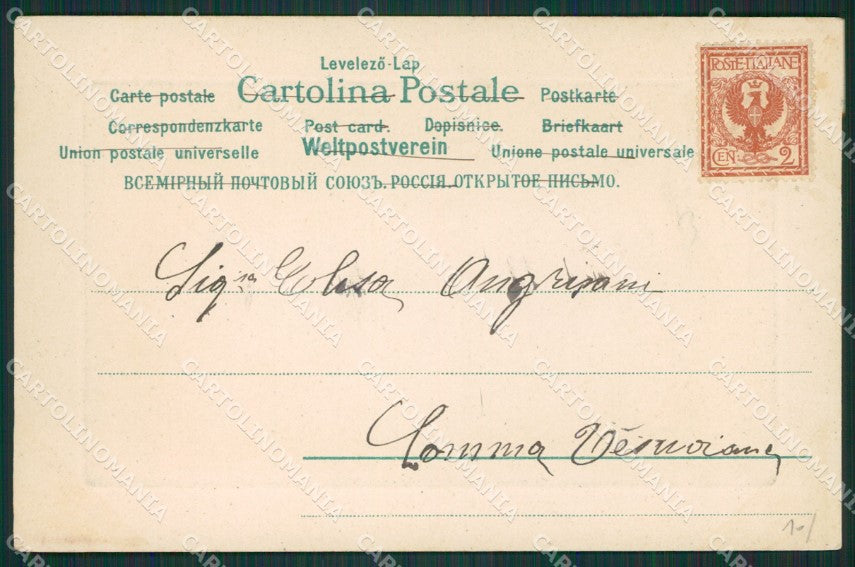 Levelező-Lap
Carte postale Cartolina Postale Postkarte
Correspondenzkarte Post card. Dopisnice. Briefkaart
Union postale universelle Weltpostverein Unione postale universale
ВСЕМІРНЫЙ ПОЧТОВЫЙ СОЮЗЪ. РОССІЯ. ОТКРЫТОЕ ПИСЬМО.
POSTE ITALIANE
CEN. 2
Sigra Angrisani
Somma Vesuviana
CARTOLINOMANIA